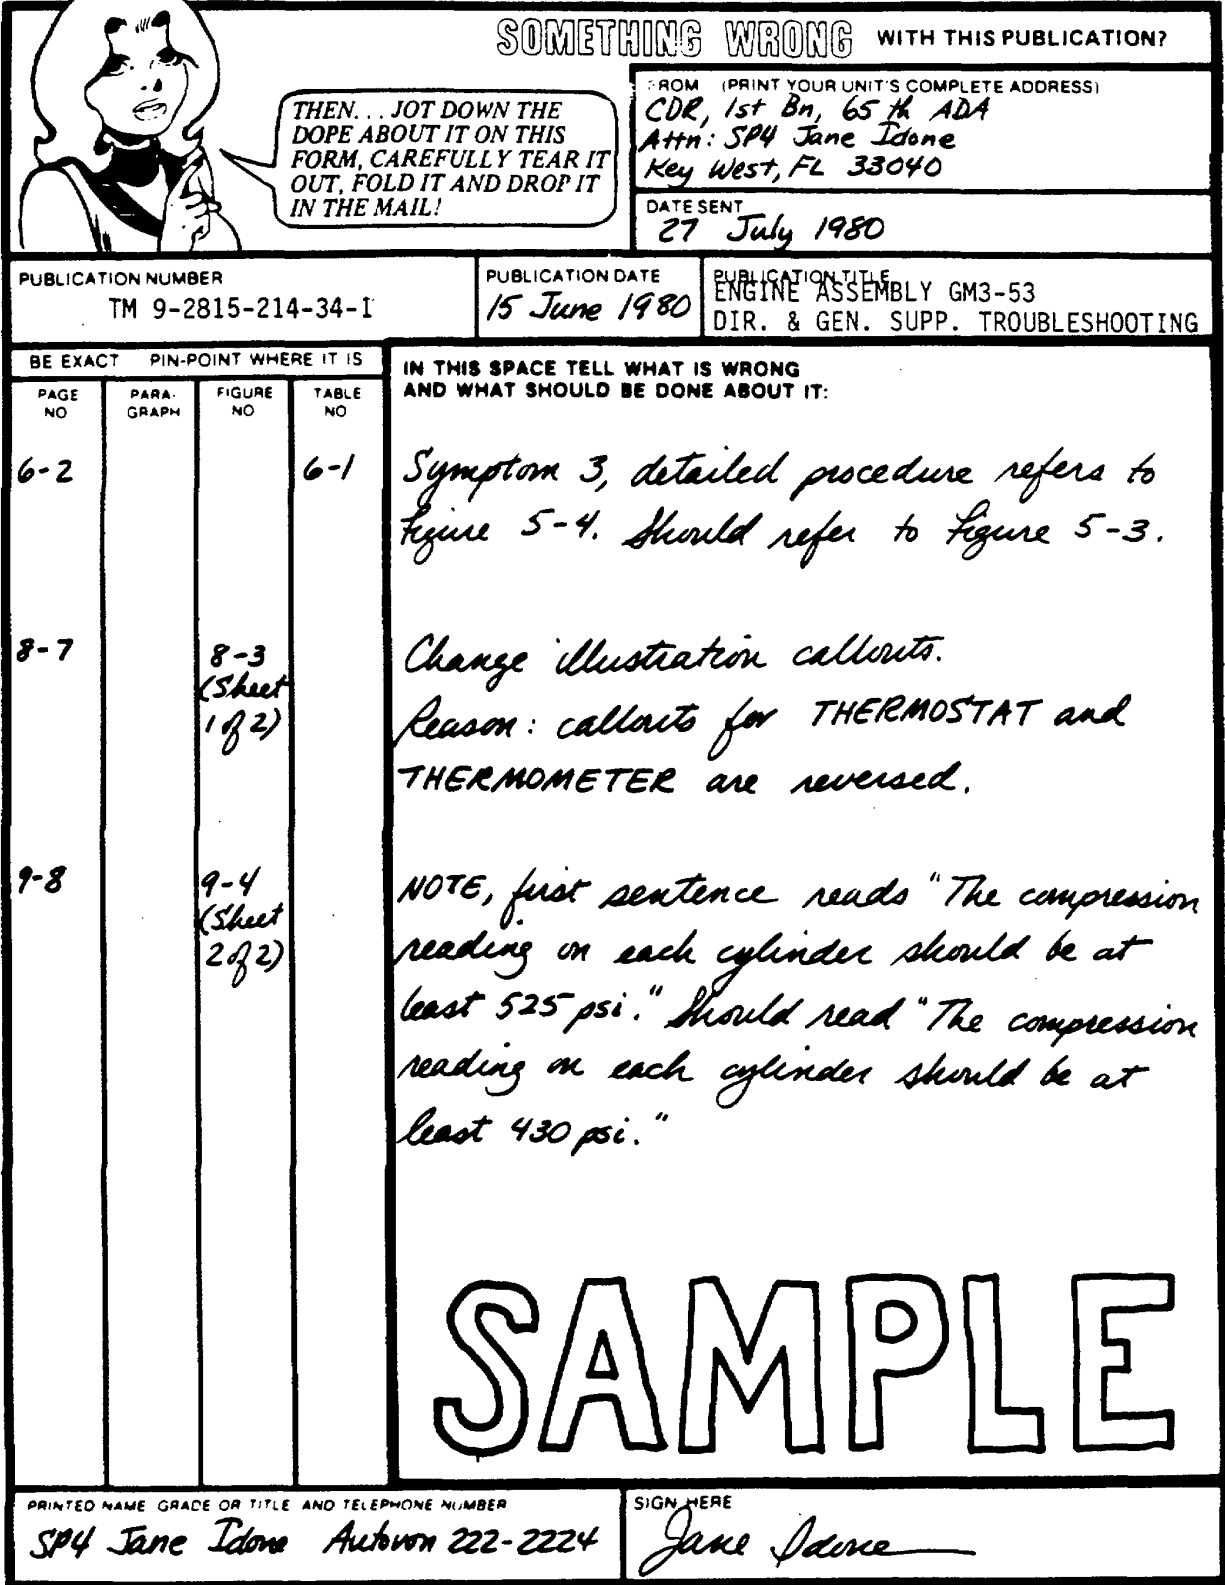 SOMETHING WRONG WITH THIS PUBLICATION?
THEN. . . JOT DOWN THE
DOPE ABOUT IT ON THIS
FORM, CAREFULLY TEAR IT
OUT, FOLD IT AND DROP IT
IN THE MAIL!
FROM (PRINT YOUR UNIT'S COMPLETE ADDRESS)
CDR, 1st Bn, 65th ADA
Attn: SP4 Jane Idone
Key West, FL 33040
DATE SENT
27 July 1980
PUBLICATION NUMBER
TM 9-2815-214-34-1
PUBLICATION DATE
15 June 1980
PUBLICATION TITLE
ENGINE ASSEMBLY GM3-53
DIR. & GEN. SUPP. TROUBLESHOOTING
BE EXACT PIN-POINT WHERE IT IS
PAGE
NO
PARA-
GRAPH
FIGURE
NO
TABLE
NO
IN THIS SPACE TELL WHAT IS WRONG
AND WHAT SHOULD BE DONE ABOUT IT:
6-2 6-1 Symptom 3, detailed procedure refers to
Figure 5-4. Should refer to Figure 5-3.
8-7 8-3 Change illustration callouts.
(Sheet
1 of 2) Reason: callouts for THERMOSTAT and
THERMOMETER are reversed.
9-8 9-4 NOTE, first sentence reads "The compression
(Sheet
2 of 2) reading on each cylinder should be at
least 525 psi." Should read "The compression
reading on each cylinder should be at
least 430 psi."
SAMPLE
PRINTED NAME GRADE OR TITLE AND TELEPHONE NUMBER
SP4 Jane Idone Autovon 222-2224
SIGN HERE
Jane Idone